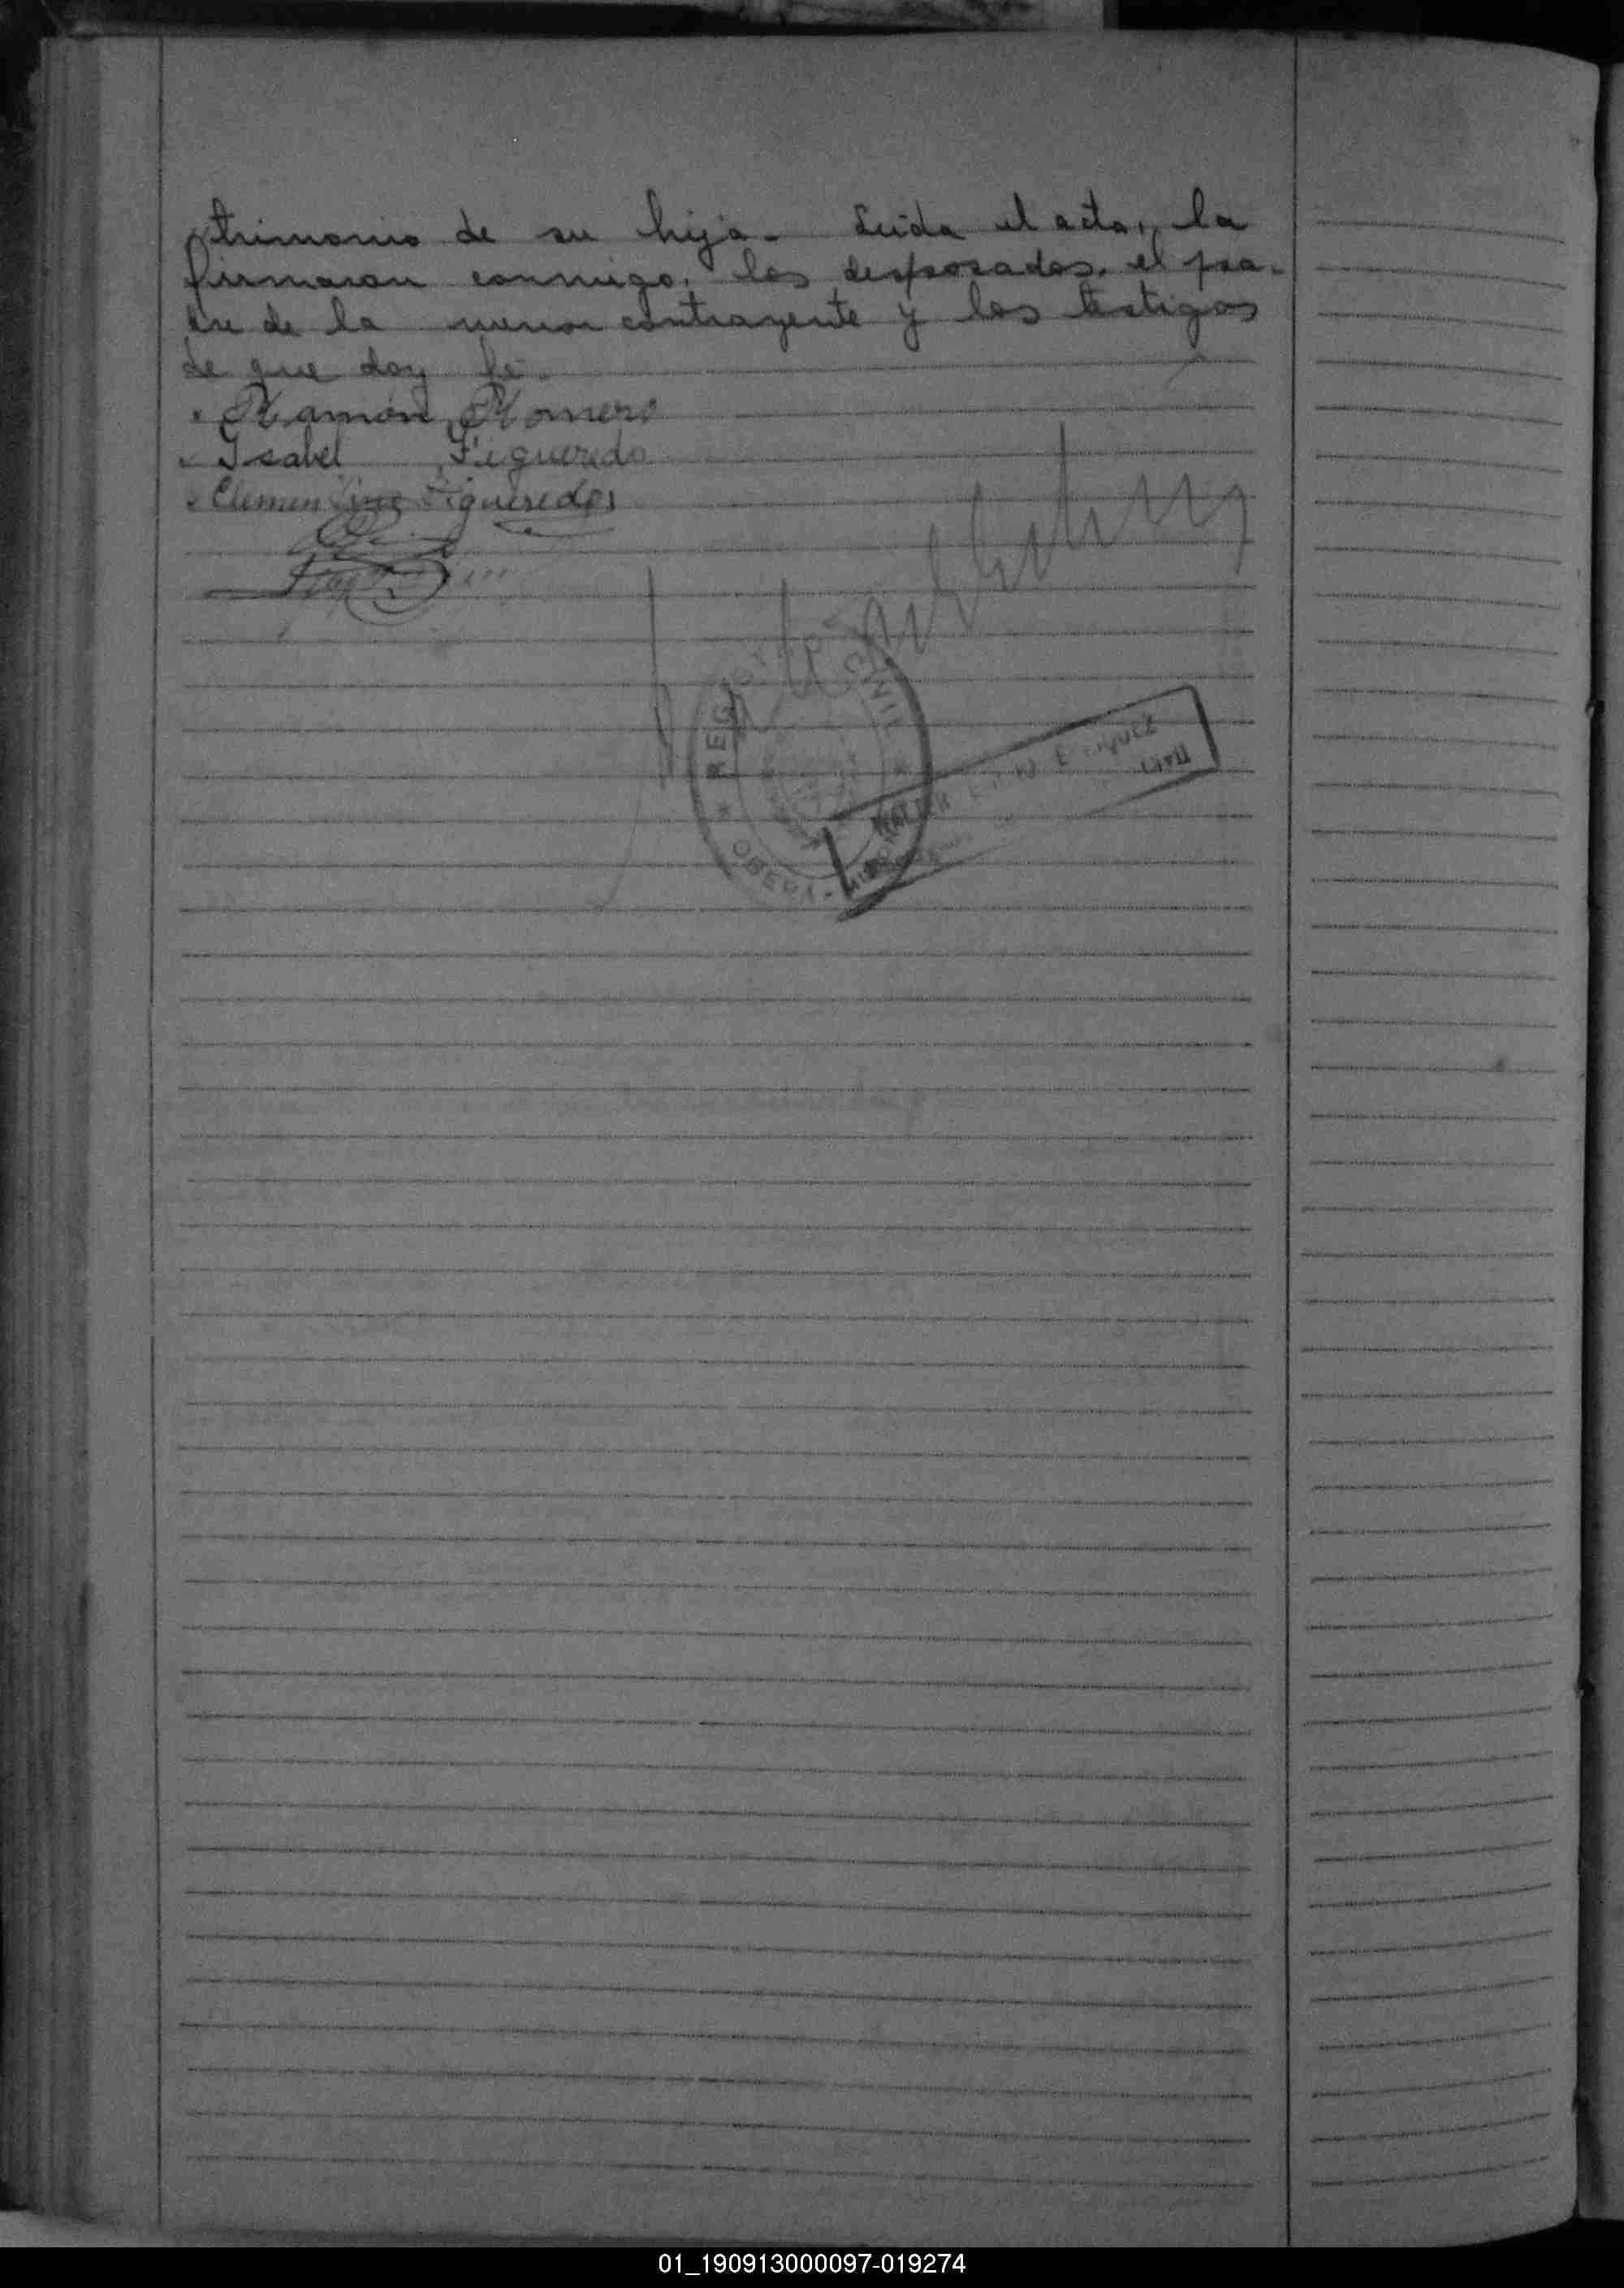 trimonio de su hija - Leida el acta, la
firmaron conmigo, los desposados, el pa-
dre de la menor contrayente y los testigos
de que doy fé.
Ramón Romero
Isabel Figueredo
Figueredo
REGISTRO CIVIL
OBERA -
01_190913000097-019274